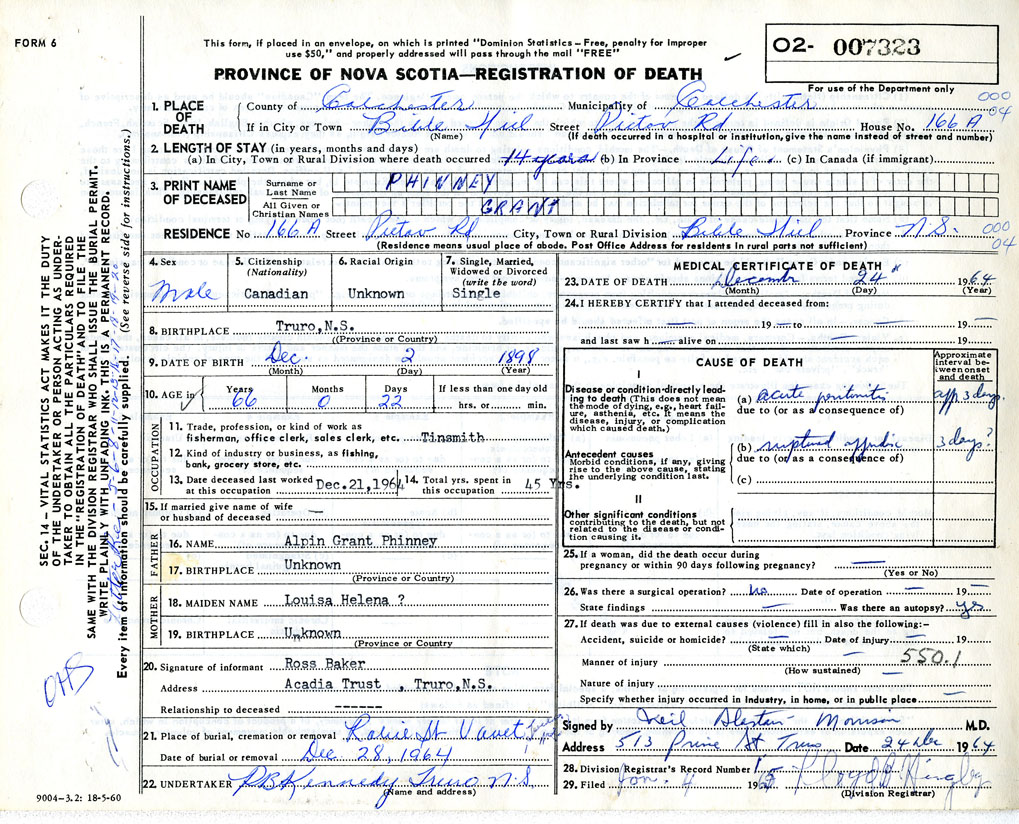 FORM 6
This form, if placed in an envelope, on which is printed "Dominion Statistics – Free, penalty for improper
use $50," and properly addressed will pass through the mail "FREE"
O2- 007323
PROVINCE OF NOVA SCOTIA—REGISTRATION OF DEATH
For use of the Department only
1. PLACE OF DEATH
County of Colchester Municipality of Colchester 000
If in City or Town Bible Hill Street Pictou Rd House No. 166 A 04
(Name) (If death occurred in a hospital or institution, give the name instead of street and number)
2. LENGTH OF STAY (in years, months and days)
(a) In City, Town or Rural Division where death occurred 14 years (b) In Province Life (c) In Canada (if immigrant)
3. PRINT NAME OF DECEASED
Surname or Last Name PHINNEY
All Given or Christian Names GRANT
RESIDENCE No 166 A Street Pictou Rd City, Town or Rural Division Bible Hill Province N.S. 000
04
(Residence means usual place of abode. Post Office Address for residents in rural parts not sufficient)
4. Sex Male
5. Citizenship (Nationality) Canadian
6. Racial Origin Unknown
7. Single, Married, Widowed or Divorced (write the word) Single
8. BIRTHPLACE Truro,N.S.
(Province or Country)
9. DATE OF BIRTH Dec. 2 1898
(Month) (Day) (Year)
10. AGE in Years 66 Months 0 Days 22 If less than one day old hrs. or min.
OCCUPATION
11. Trade, profession, or kind of work as
fisherman, office clerk, sales clerk, etc. Tinsmith
12. Kind of industry or business, as fishing,
bank, grocery store, etc.
13. Date deceased last worked at this occupation Dec.21,1964
14. Total yrs. spent in this occupation 45 Yrs.
15. If married give name of wife
or husband of deceased —
FATHER
16. NAME Alpin Grant Phinney
17. BIRTHPLACE Unknown
(Province or Country)
MOTHER
18. MAIDEN NAME Louisa Helena ?
19. BIRTHPLACE Unknown
(Province or Country)
20. Signature of informant Ross Baker
Address Acadia Trust , Truro,N.S.
Relationship to deceased ------
21. Place of burial, cremation or removal Robie St Vault
Date of burial or removal Dec 28, 1964
22. UNDERTAKER RB Kennedy Truro N S
(Name and address)
MEDICAL CERTIFICATE OF DEATH
23. DATE OF DEATH Decemb 24 1964
(Month) (Day) (Year)
24. I HEREBY CERTIFY that I attended deceased from:
— 19 — to — 19 —
and last saw h — alive on — 19 —
CAUSE OF DEATH
Approximate interval between onset and death
I
Disease or condition directly leading to death (This does not mean the mode of dying, e.g., heart failure, asthenia, etc. It means the disease, injury, or complication which caused death.)
(a) acute peritonitis app 3 days
due to (or as a consequence of)
Antecedent causes
Morbid conditions, if any, giving rise to the above cause, stating the underlying condition last.
(b) ruptured appendix 3 days?
due to (or as a consequence of)
(c)
II
Other significant conditions
contributing to the death, but not related to the disease or condition causing it.
25. If a woman, did the death occur during
pregnancy or within 90 days following pregnancy? —
(Yes or No)
26. Was there a surgical operation? No Date of operation — 19 —
State findings — Was there an autopsy? yes
27. If death was due to external causes (violence) fill in also the following:–
Accident, suicide or homicide? — Date of injury — 19
(State which)
Manner of injury — 550.1
(How sustained)
Nature of injury —
Specify whether injury occurred in Industry, in home, or in public place —
Signed by Neil Alastair Morrison M.D.
Address 513 Prince St Truro Date 24 Dec 1964
28. Division Registrar's Record Number
29. Filed Jan. 4 19
(Division Registrar)
SEC. 14 – VITAL STATISTICS ACT MAKES IT THE DUTY
OF THE UNDERTAKER OR PERSON ACTING AS UNDER-
TAKER TO OBTAIN ALL THE PARTICULARS REQUIRED
IN THE "REGISTRATION OF DEATH" AND TO FILE THE
SAME WITH THE DIVISION REGISTRAR WHO SHALL ISSUE THE BURIAL PERMIT.
WRITE PLAINLY WITH UNFADING INK. THIS IS A PERMANENT RECORD.
Every item of information should be carefully supplied. (See reverse side for instructions.)
OHS
9004-3.2: 18-5-60